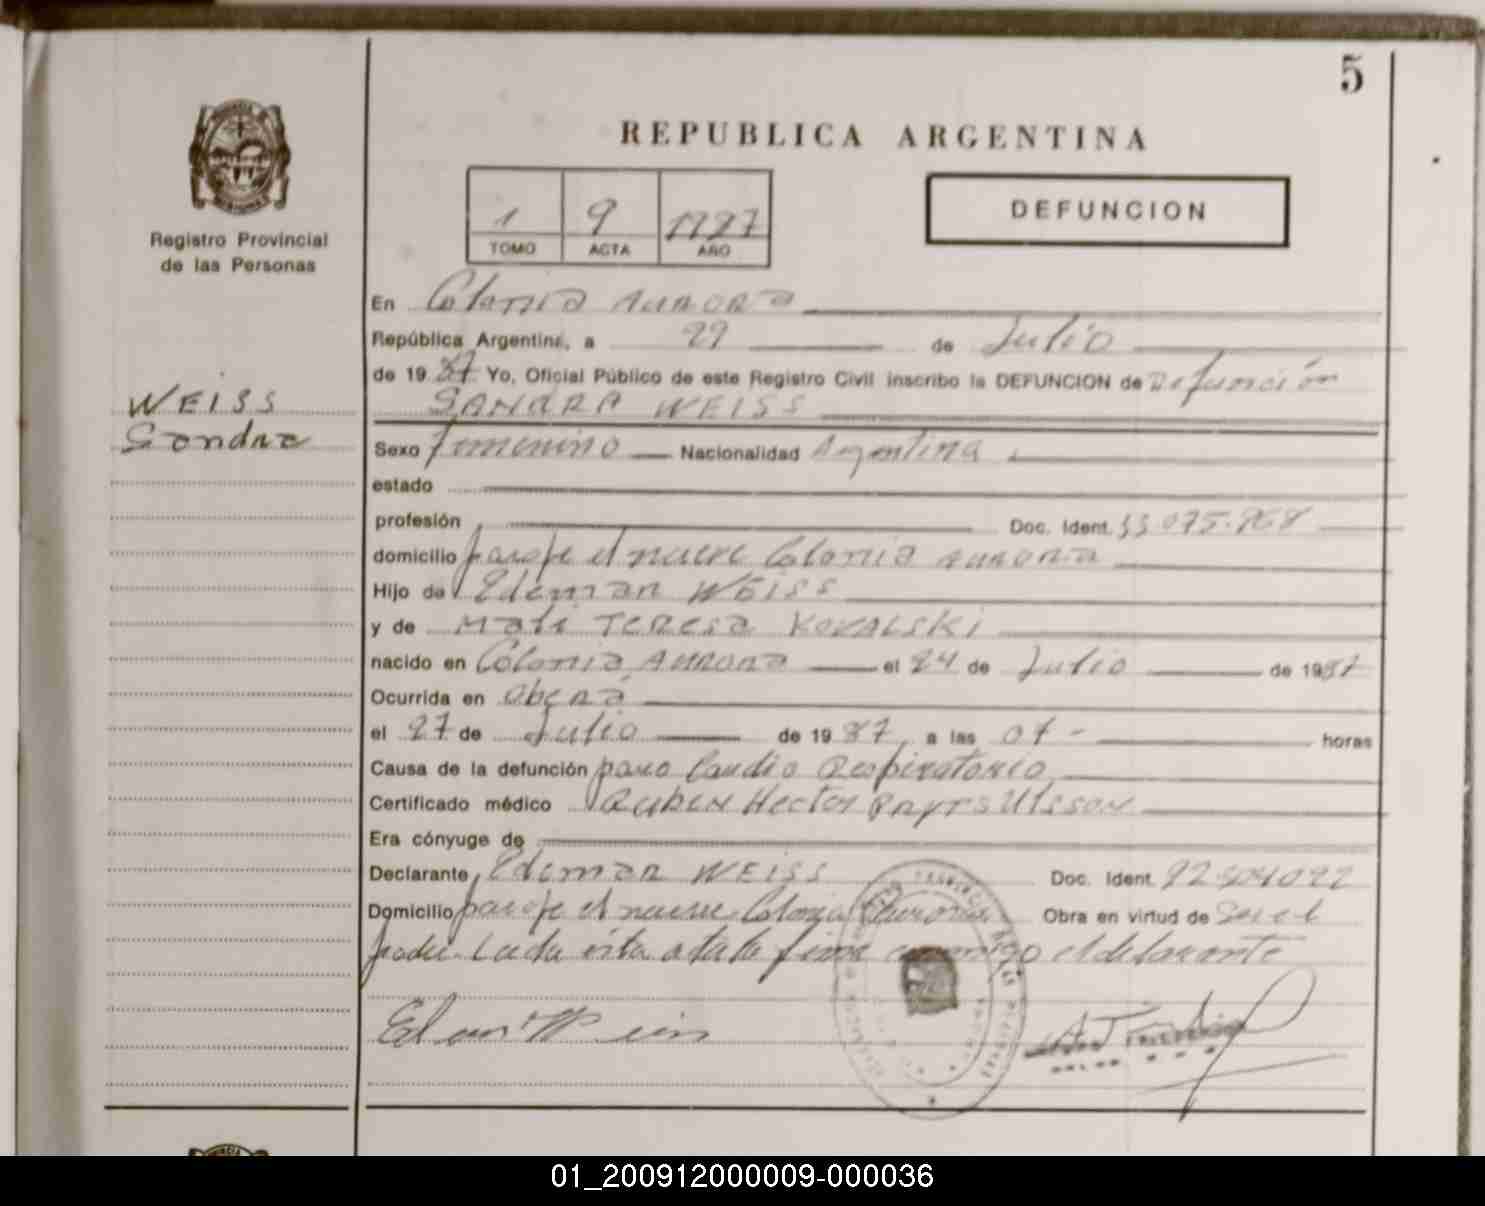 5
REPUBLICA ARGENTINA
1 9 1987
TOMO ACTA AÑO
DEFUNCION
Registro Provincial
de las Personas
WEISS
Sandra
En Colonia Aurora
República Argentina, a 29 de Julio
de 1987 Yo, Oficial Público de este Registro Civil inscribo la DEFUNCION de Defunción
SANDRA WEISS
Sexo femenino Nacionalidad Argentina
estado
profesión Doc. Ident.
domicilio paraje el nueve Colonia Aurora
Hijo de Edemar WEISS
y de Mali TERESA KOVALSKI
nacido en Colonia Aurora el 24 de Julio de 1987
Ocurrida en oberá
el 27 de Julio de 1987 a las 07 - horas
Causa de la defunción paro Cardio Respiratorio
Certificado médico RUBEN Hector
Era cónyuge de
Declarante Edemar WEISS Doc. Ident.
Domicilio paraje el nueve Colonia Aurora Obra en virtud de ser el
padre. Leida esta acta la firma conmigo el declarante
01_200912000009-000036